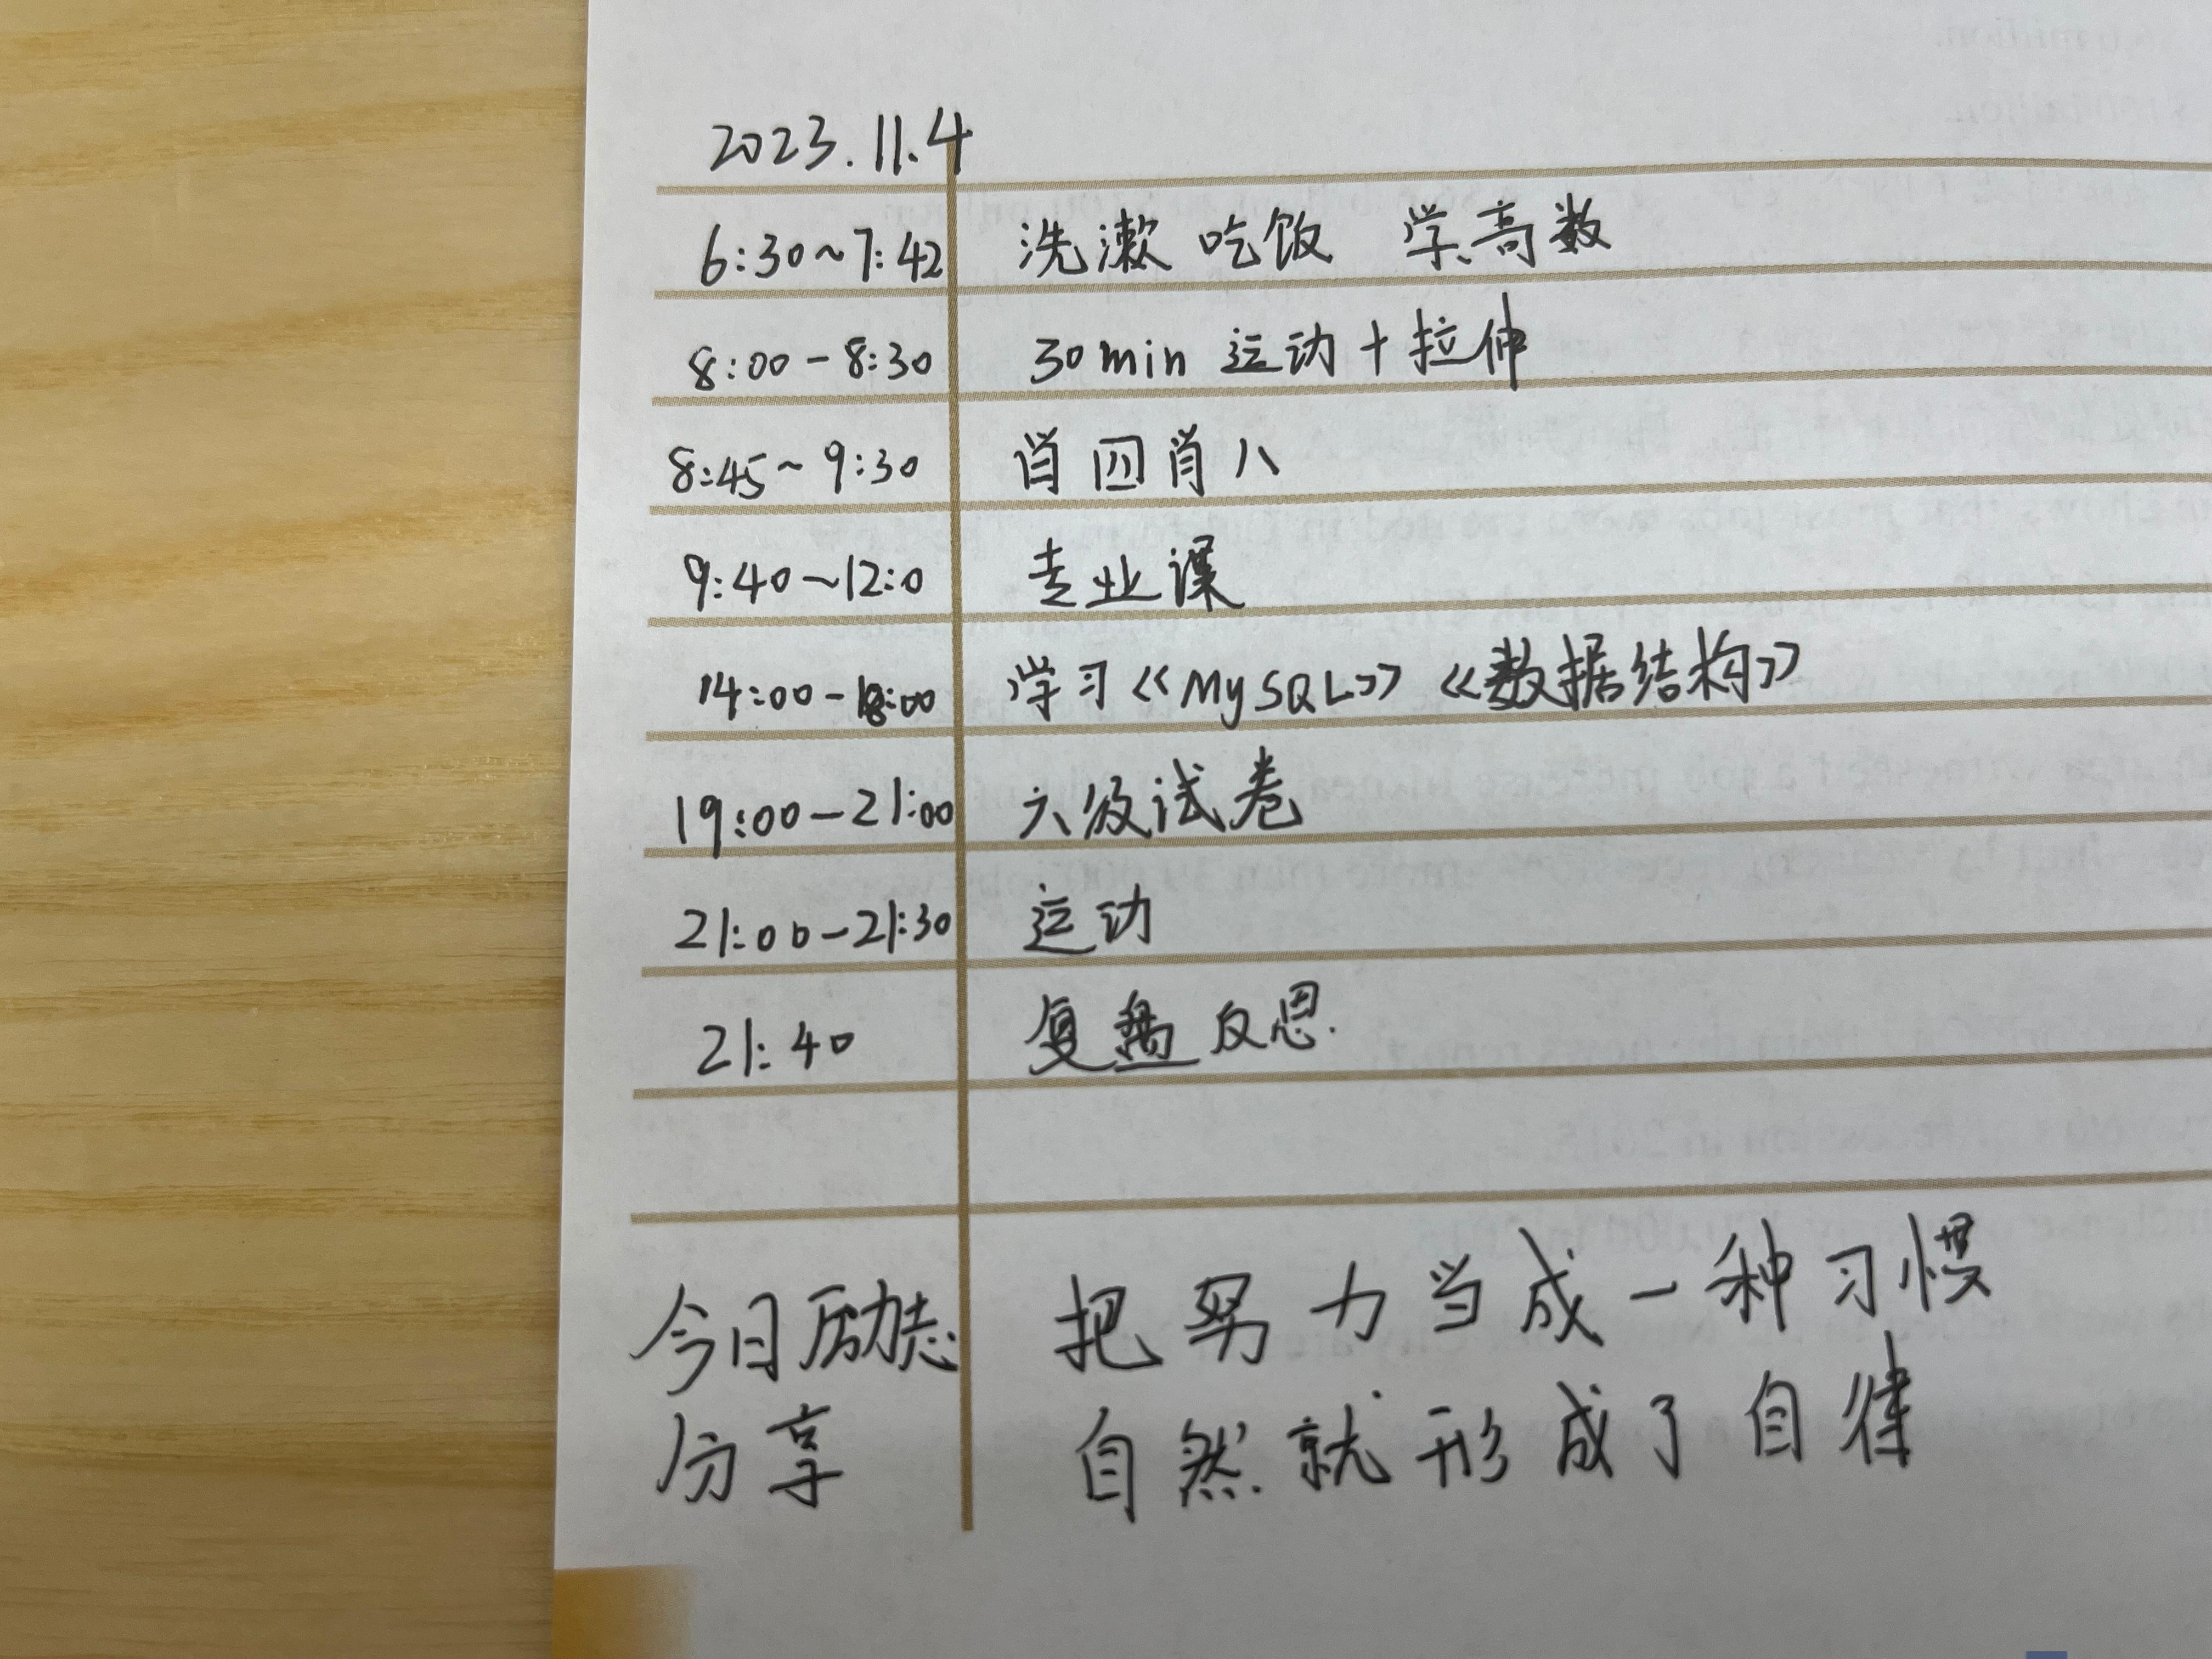 2023.11.4
6:30~7:42 洗漱 吃饭 学高数
8:00-8:30 30min 运动+拉伸
8:45~9:30 肖四肖八
9:40~12:0 专业课
14:00-18:00 学习《MySQL》《数据结构》
19:00-21:00 六级试卷
21:00-21:30 运动
21:40 复盘反思.
今日励志 把努力当成一种习惯
分享 自然就形成了自律